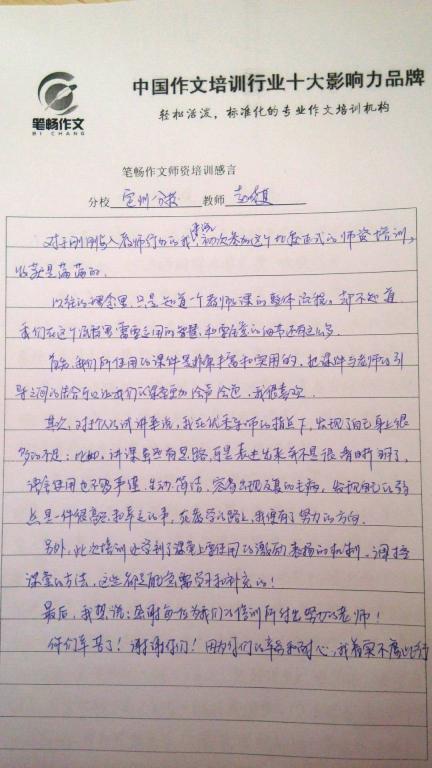 笔畅作文
BI CHANG
中国作文培训行业十大影响力品牌
轻松活泼，标准化的专业作文培训机构
笔畅作文师资培训感言
分校 定州分校 教师
对于刚刚步入教师行业的我来说，初次参加这个如此正式的师资培训，
收获是满满的。
以往的概念里，只是知道一个教师上课的整体流程，却不知道
我们在这个流程里需要运用的智慧，和需注意的细节还有这么多。
首先，我们所使用的课件是非常丰富和实用的，把课件与老师的引
导之间的结合可以让我们的课堂更加绘声绘色，我很喜欢。
其次，对于个人的试讲来说，我在优秀导师的指点下，发现了自己身上很
多的不足：比如，讲课虽然有思路，可是表述出来并不是很清晰明了，
语言使用也不够严谨、生动、简洁，容易出现反复的毛病，发现自己的弱
点是一件很高兴和幸运的事，在教学的路上，我便有了努力的方向。
另外，此次培训还学到了课堂上要使用的激励表扬的机制，调控
课堂的方法，这些都是我需要学习和补充的！
最后，我想说：感谢每位为我们的培训所付出努力的老师！
你们辛苦了！谢谢你们！因为你们的辛劳和耐心，我着实不虚此行